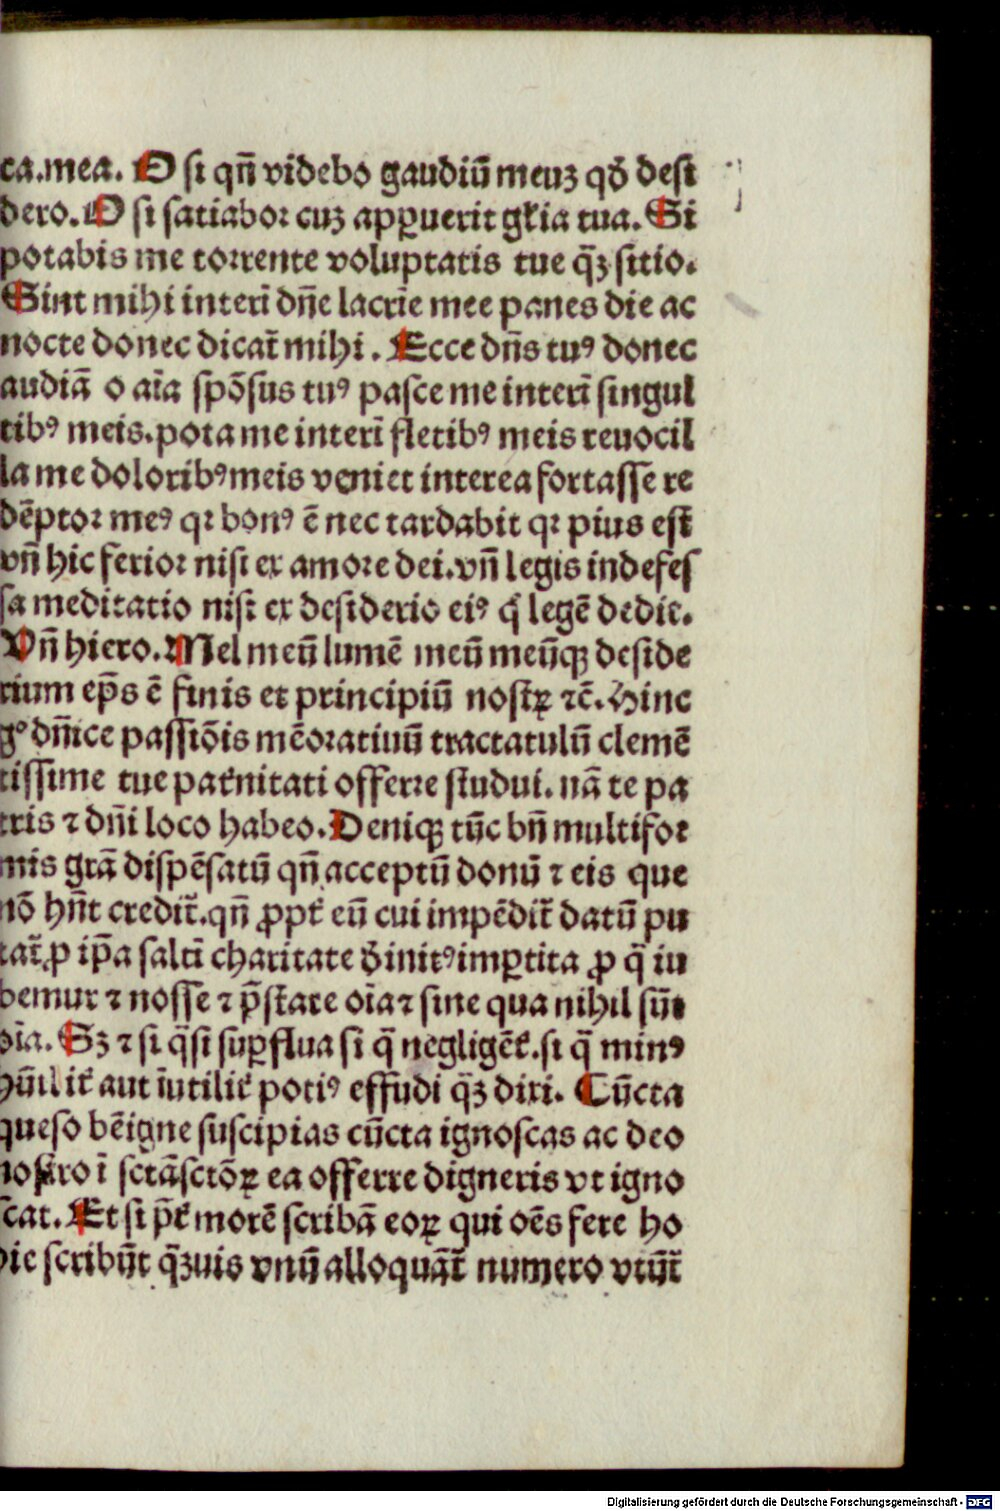 ca.mea. O si qn̄ videbo gaudiū meuꝫ qð desi
dero. O si satiabor cuꝫ apꝑuerit gl̄ia tua. Si
potabis me torrente voluptatis tue q̄ꝫ sitio.
Sint mihi interī dn̄e lacrīe mee panes die ac
nocte donec dicat̄ mihi. Ecce dn̄s tuꝰ donec
audiā o aīa spōsus tuꝰ pasce me interī singul
tibꝰ meis.pota me interī fletibꝰ meis reuocil
la me doloribꝰ meis veniet interea fortasse re
dēptor meꝰ qꝛ bonꝰ ē nec tardabit qꝛ pius est
vn̄ hic ferior nisi ex amore dei.vn̄ legis indefes
sa meditatio nisi ex desiderio eiꝰ q̇ legē dedit.
Vn̄ hiero. Mel meū lumē meū meūqꝫ deside
rium ep̄s ē finis et principiū nostꝝ ⁊c̄. Hinc
gͦ dn̄ice passiōis mēoratiuū tractatulū clemē
tissime tue pat̄nitati offerre studui. nā te pa
tris ⁊ dn̄i loco habeo. Deniqꝫ tūc bn̄ multifor
mis grā dispēsatū qn̄ acceptū donū ⁊ eis que
nō hn̄t credit̄.qn̄ ꝓpt̄ eū cui impēdit̄ datū pu
tat̄.ꝓ ip̄a saltī charitate ðinitꝰ imꝑtita ꝓ q̄ iu
bemur ⁊ nosse ⁊ p̄stare oīa ⁊ sine qua nihil sūt
oīa. Sꝫ ⁊ si q̄si suꝑflua si q̄ negligēt̄.si q̄ minꝰ
hūilit̄ aut īutilit̄ potiꝰ effudi q̄ꝫ dixi. Cūcta
queso bēigne suscipias cūcta ignoscas ac deo
nostro ī sctāsctōꝝ ea offerre digneris vt igno
scat. Et si p̄t̄ morē scribā eoꝝ qui oēs fere ho
die scribūt q̄ꝫuis vnū alloquāt̄ numero vtūt̄
Digitalisierung gefördert durch die Deutsche Forschungsgemeinschaft - DFG